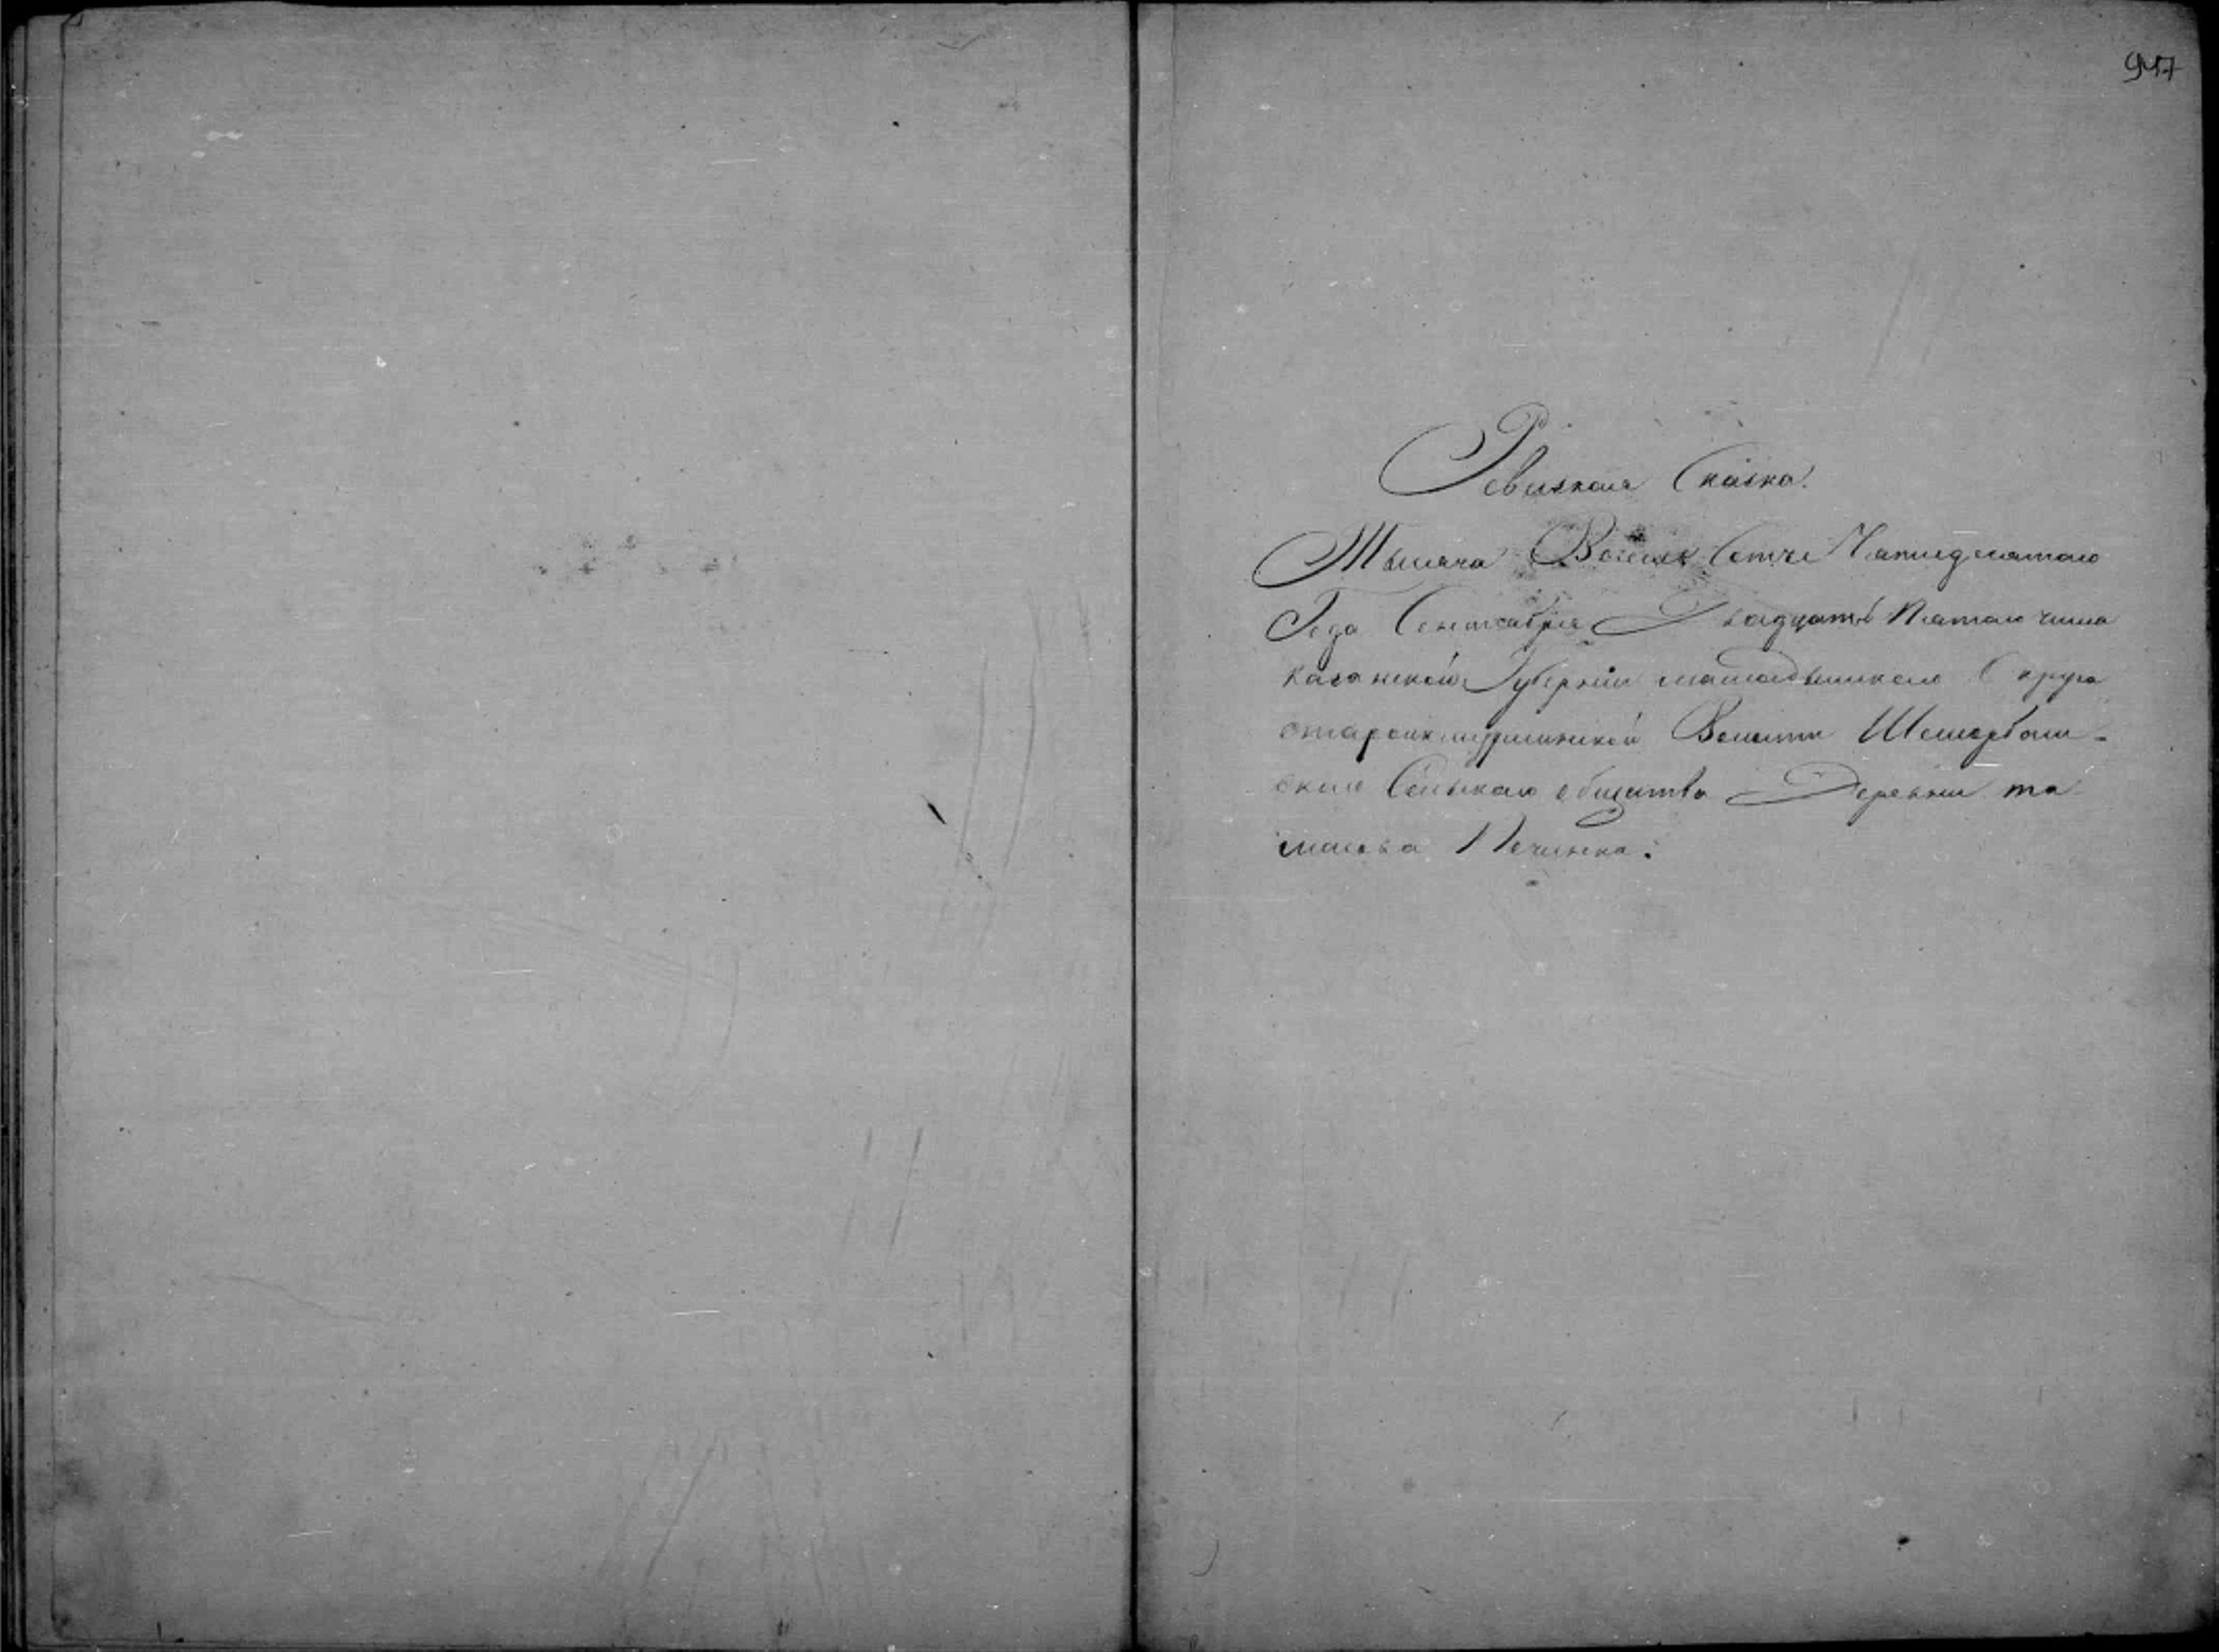 947
Ревизкая Сказка.
Тысяча Восемь Сотъ Пятидесятаго
Года Сентября Двадцать Пятаго числа
казанской Губернiи мамадышскаго Округа
Волости Шеморбаш-
скаго Сельскаго общества Деревни та
масова Починка.